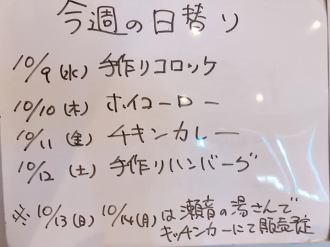 今週の日替り
10/9(水) 手作リコロッケ
10/10(木) ホイコーロー
10/11(金) チキンカレー
10/12(土) 手作リハンバーグ
※10/13(日) 10/14(月)は瀬音の湯さんで
キッチンカーにて販売予定